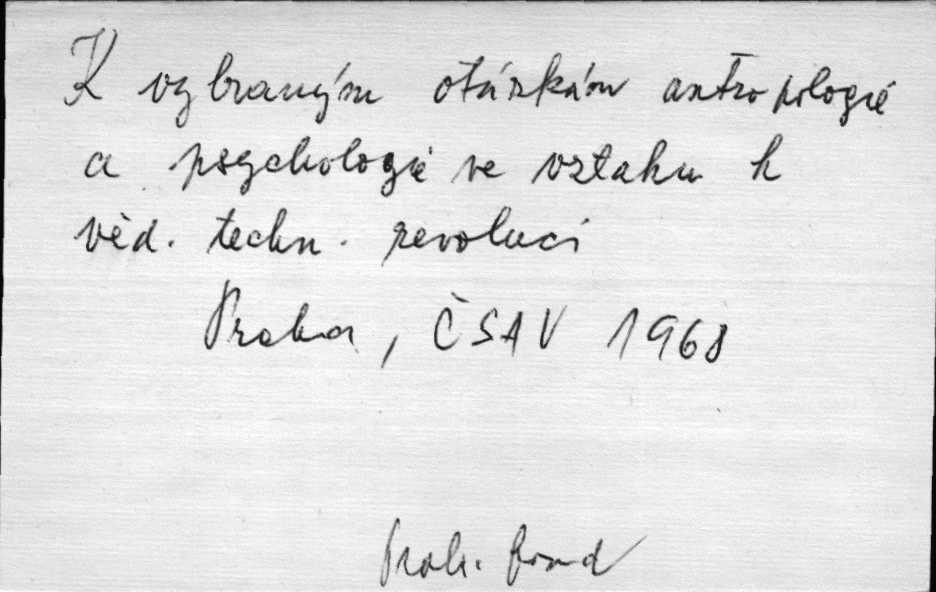 K vybraným otázkám antropologie
a psychologie ve vztahu k
věd. techn. revoluci
Praha, ČSAV 1968
fond